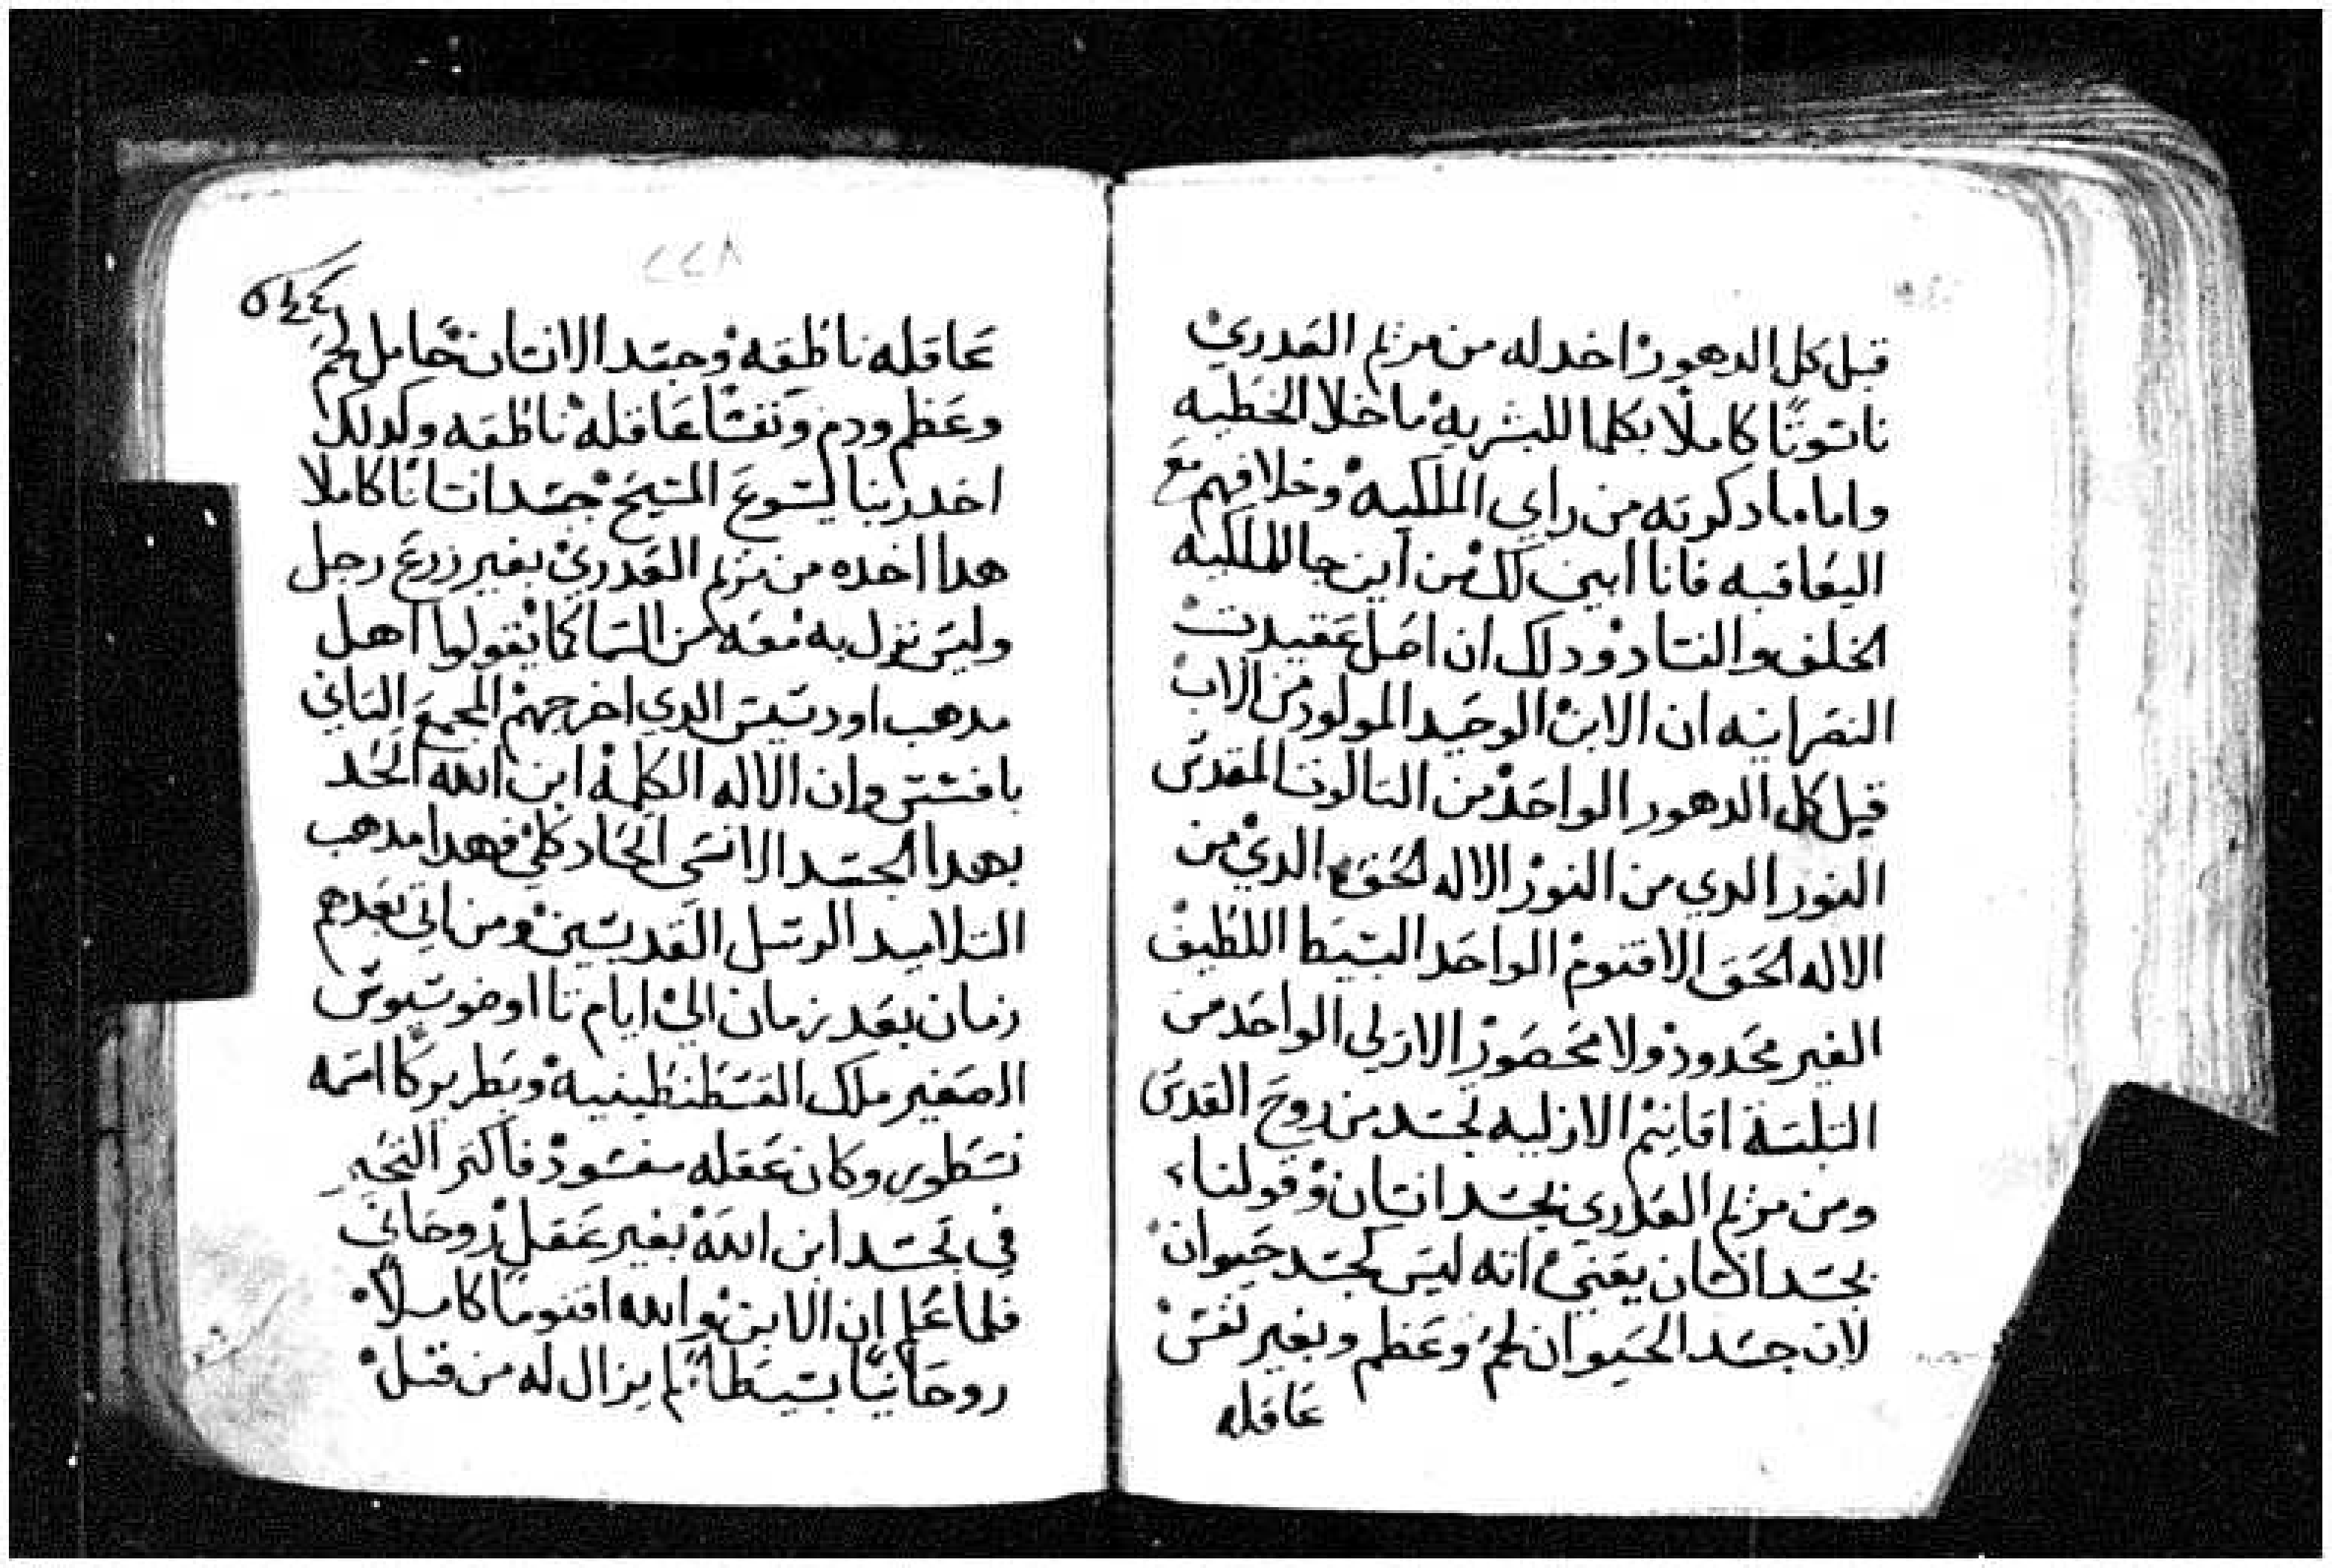 قبل كل الدهور اخد له من مريم العدري
ناسوتا كاملا بكلما للبشريه ما خلا الخطيه
واما ما دكرته من راي الملكيه وخلافهم مع
اليعاقبه فانا ابين لك من اين جا للملكيه
الخلف والفساد ودلك ان اصل عقيدت
النصرانيه ان الابن الوحيد المولود من الاب
قبل كل الدهور الواحد من التالوت المقدس
النور الدي من النور الاله الحق الدي من
الاله الحق الاقنوم الواحد البسيط اللطيف
الغير محدود ولا محصور الازلي الواحد من
التلتة اقانيم الازليه تجسد من روح القدس
ومن مريم العدري بجسد انسان وقولنا
بجسد انسان يعني انه ليس كجسد حيوان
لان جسد الحيوان لحم وعظم وبغير نفس
عاقله
٢٢٨
عاقله ناطقه وجسد الانسان حامل لحم
وعظم ودم ونفسا عاقله ناطقه وكدلك
اخد ربنا يسوع المسيح جسد انسانا كاملا
هدا اخده من مريم العدري بغير زرع رجل
وليس نزل به معه من السما كما يقولوا اهل
مدهب اودسيس الدي اخرجهم المجمع التاني
بافسس وان الاله الكلمة ابن الله اتحد
بهدا الجسد الانسي اتحاد كلي فهدا مدهب
التلاميد الرسل القديسين ومن اتي بعدهم
زمان بعد زمان الي ايام تااوضوسيوس
الصغير ملك القسطنطينيه وبطريركا اسمه
نسطور وكان عقله مفسود فاكتر
في تجسد ابن الله بغير عقل روحاني
فلما علم ان الابن والله اقنوما كاملا
روحانيا بسيطا لم يزال له من قبل